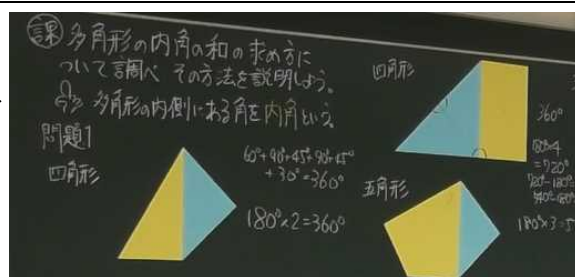 課 多角形の内角の和の求め方に
ついて調べ その方法を説明しよう。
多角形の内側にある角を内角という。
問題1
四角形
60°+90°+45°+90°+45°
+30°=360°
180°×2=360°
四角形
360°
180×4
=720°
720°-180°=
540°-180°
五角形
180°×3=5